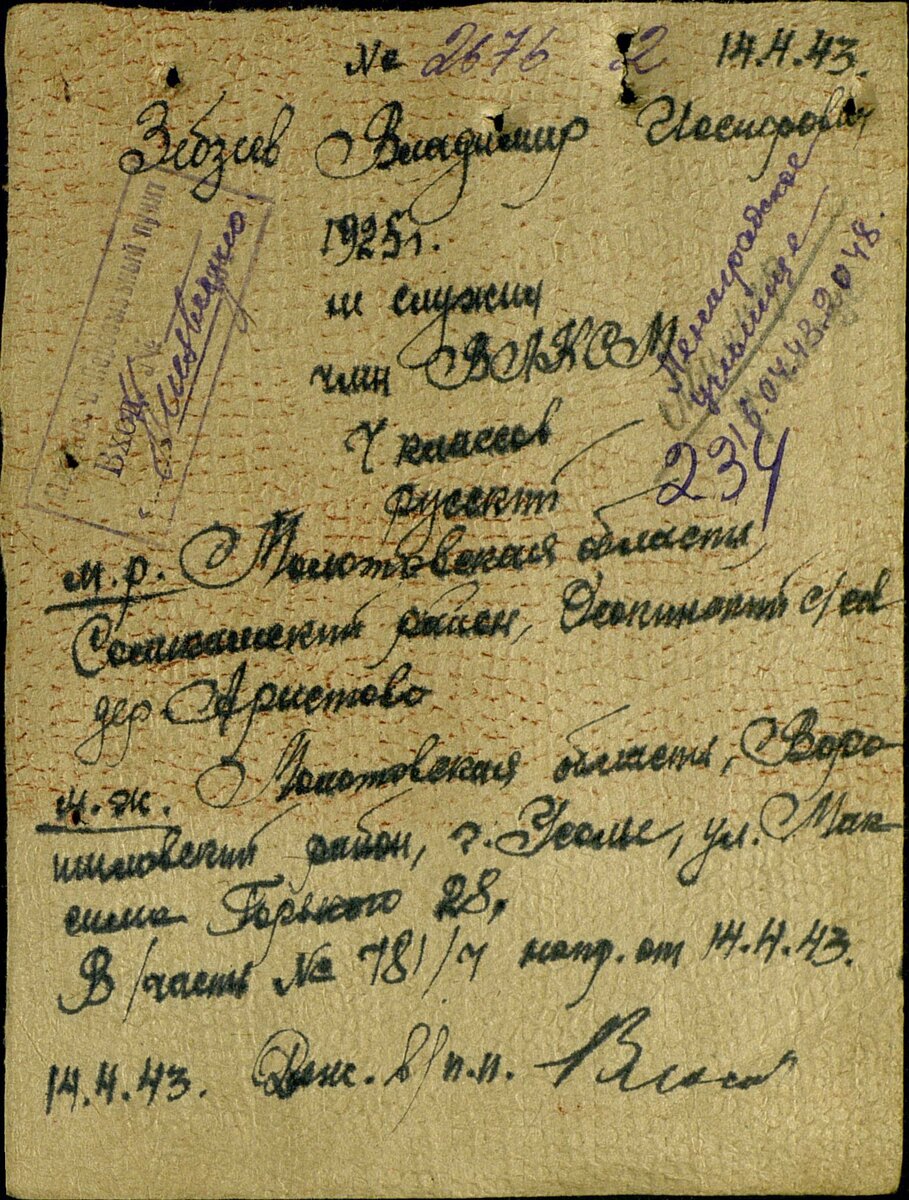 № 2676 2 14.4.43.
Зебзеев Владимир Иосифович
1925 г.
не служил
член ВЛКСМ
7 классов
русский
м.р. Молотовская области,
Соликамский район, Осокинский с/сов
дер Аристово
м.ж. Молотовская область, Воро-
шиловский район, г. Усолье, ул. Мак
сима Горького 28,
В/часть № 781/7 напр. от 14.4.43.
14.4.43. Деж. в/п.п.
пункт
ВХОД №
Ленинградское
училище
16.04.43. 2048.
234